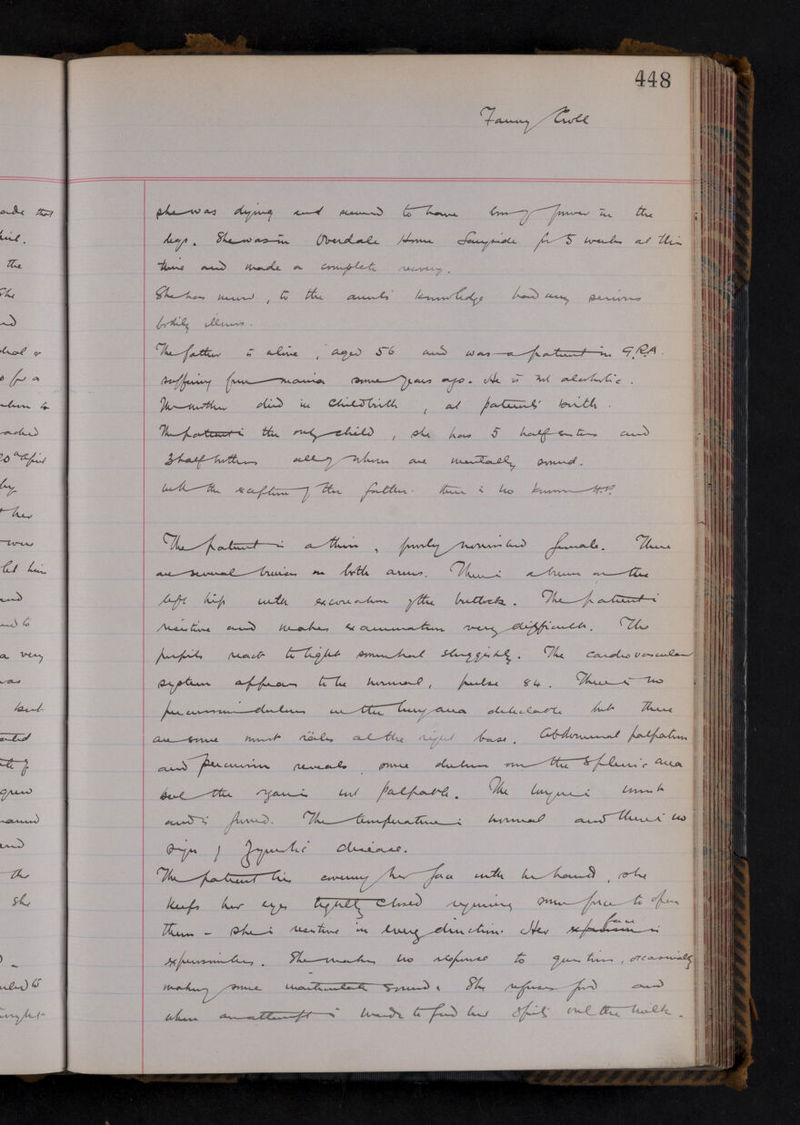 448
Fanny Croll
she was dying and seemed to have lost power in the
legs. She was in Overdale Home Langside for 5 weeks at this
time and made a complete recovery.
She has never, to the aunt's knowledge had any serious
bodily illness.
The father is alive, aged 56 and was a patient in G.R.A.
suffering from mania some years ago. He is not alcoholic.
The mother died in childbirth, at patient's birth.
The patient is the only child, she has 5 half sisters and
3 half brothers all of whom are mentally sound.
with the exception of the father there is no known H.P.
The patient is a thin, poorly nourished female. There
are several bruises on both arms. There is a bruise on the
left hip with excoriation of the buttocks. The patient is
resistive and makes examination very difficult. The
pupils react to light somewhat sluggishly. The cardiovascular
system appears to be normal, pulse 84. There is no
percussion dulness in the lung area detectable but there
are some moist râles at the right base. Abdominal palpation
and percussion reveals some dulness over the splenic area
but the organ is not palpable. The tongue is moist
and is furred. The temperature is normal and there is no
sign of zymotic disease.
The patient lies covering her face with her hands, she
keeps her eyes tightly closed requiring some force to open
them - she is resistive in every direction. Her face is
expressionless. She makes no response to questions, occasionally
making some inarticulate sound. She refuses food and
when an attempt is made to feed her spits out the milk.